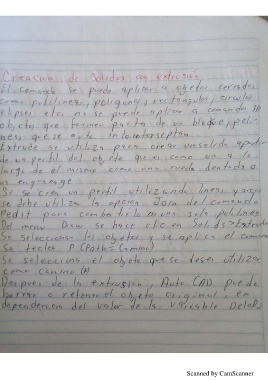 Creación de Solidos con extrusión
El comando se puede aplicar a objetos cerrados
como polilineas, poligonos, rectangulos, circulos
elipses etc. no se puede aplicar a comandos 3D
objetos que formen parte de un bloque, poli-
lineas que se
Extrude se utiliza para crear un solido
de un perfil del objeto que es como un a lo
largo de el mismo como una rueda dentada o
un engranage.
Si se crea un perfil utilizando lineas y arcos
se debe utilizar la opcion Join del comando
Pedit para convertirlo en una sola polilinea
Del menu Draw se hace clic en Solids>Extrude
Se seleccionan los objetos y se aplica el comando
Se teclea P (Path=Camino)
Se selecciona el objeto que se desea utilizar
como Camino
Despues de la extrusion, AutoCAD puede
borrar o retener el objeto original, en
dependencia del valor de la variable
Scanned by CamScanner